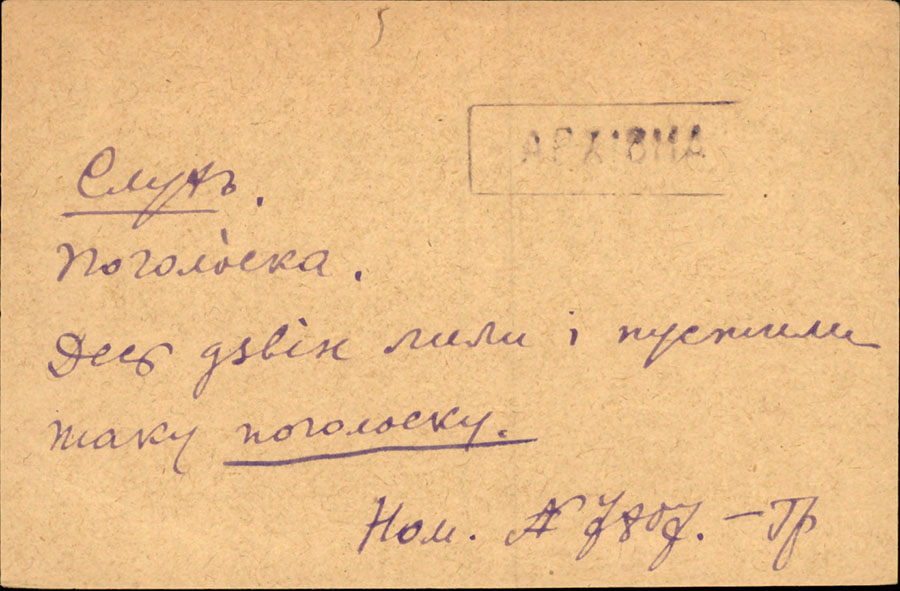 АРХІВНА
Слухъ.
Поголоска.
Десь дзвін лили і пустили
таку поголоску.
Ном. №
— Гр